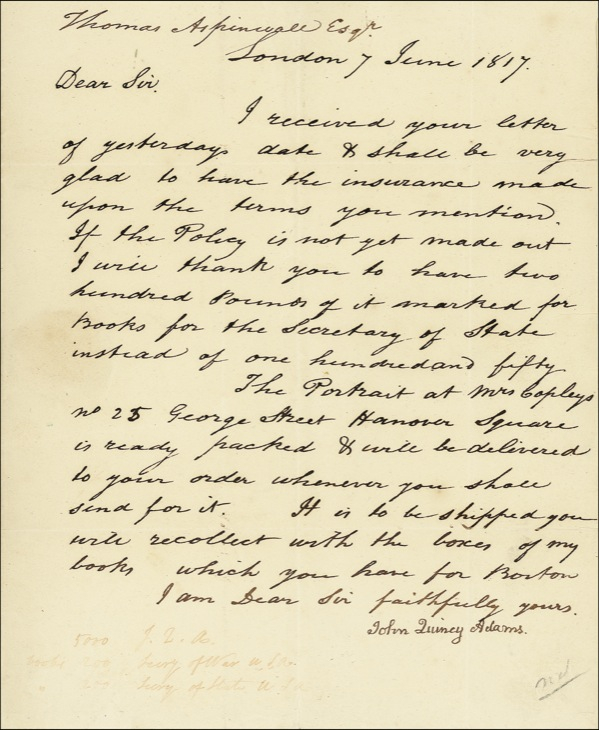 Thomas Aspinwall Esqr.
London 7 June 1817.
Dear Sir.
I received your letter
of yesterdays date & shall be very
glad to have the insurance made
upon the terms you mention.
If the Policy is not yet made out
I will thank you to have two
hundred Pounds of it marked for
Books for the Secretary of State
instead of one hundred and fifty
The Portrait at Mrs Copleys
no 25 George Street Hanover Square
is ready packed & will be delivered
to your order whenever you shall
send for it. It is to be shipped you
will recollect with the boxes of my
books which you have for Boston
I am Dear Sir faithfully yours.
John Quincy Adams.
5000 J. Q. A.
books 200 Secry of War U.S.
Secry of State U.S.